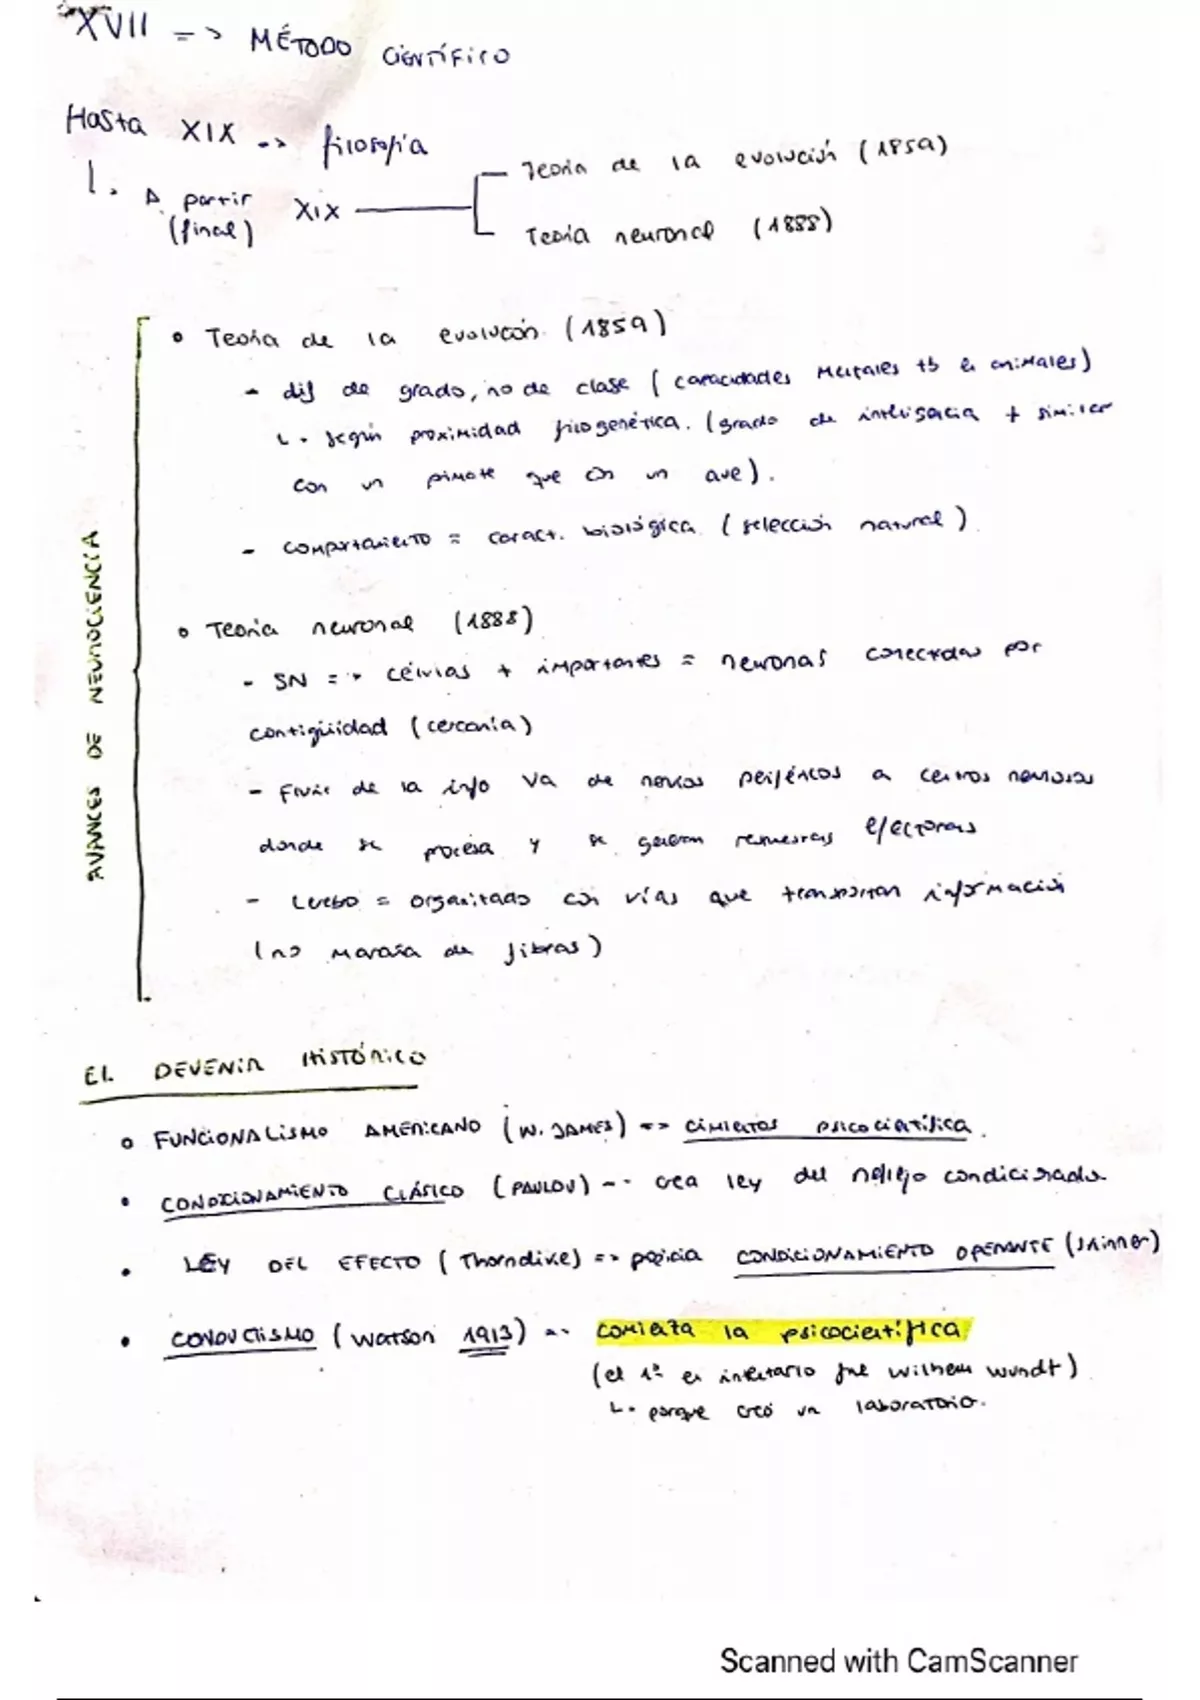 XVII => MÉTODO CIENTÍFICO
Hasta XIX => filosofía
L. A partir XIX
(final)
Teoría de la evolución (1859)
Teoría neuronal (1888)
AVANCES DE NEUROCIENCIA
• Teoría de la evolución (1859)
- dif de grado, no de clase (capacidades mentales tb en animales)
L. según proximidad filogenética. (grado de inteligencia + similar
con un primate que con un ave).
- comportamiento = caract. biológica (selección natural).
• Teoría neuronal (1888)
- SN => células + importantes = neuronas conectadas por
contigüidad (cercanía)
- Flujo de la info va de nervios periféricos a centros nerviosos
donde se procesa y se generan respuestas efectoras
- Cerebro = organizado con vías que transportan información
(no maraña de fibras)
EL DEVENIR HISTÓRICO
• FUNCIONALISMO AMERICANO (W. JAMES) => cimientos psicocientífica.
• CONDICIONAMIENTO CLÁSICO (PAVLOV) -. crea ley del reflejo condicionado.
• LEY DEL EFECTO (Thorndike) => CONDICIONAMIENTO OPERANTE (Skinner)
• CONDUCTISMO (Watson 1913) =. comienza la psicocientífica
(el 1º en intentarlo fue wilhem wundt)
L. porque creó un laboratorio.
Scanned with CamScanner